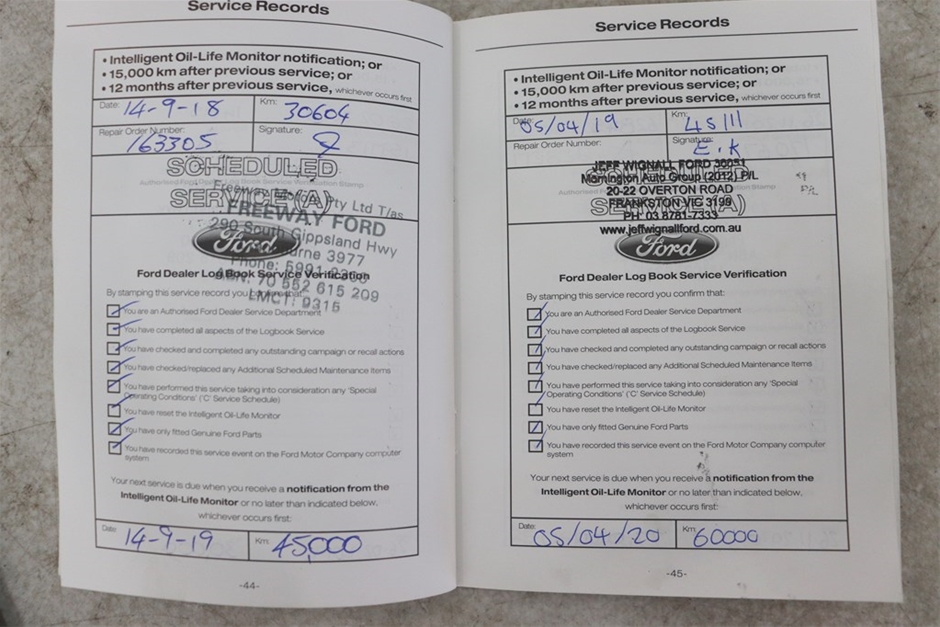 Service Records
• Intelligent Oil-Life Monitor notification; or
• 15,000 km after previous service; or
• 12 months after previous service, whichever occurs first
Date: 14-9-18 Km: 30604
Repair Order Number: 163305 Signature:
SCHEDULED
SERVICE (A)
Pty Ltd T/as
FREEWAY FORD
290 South Gippsland Hwy
3977
Phone: 5991
ABN: 70 552 615 209
LMCT: 9315
Ford
Ford Dealer Log Book Service Verification
By stamping this service record you confirm that:
You are an Authorised Ford Dealer Service Department
You have completed all aspects of the Logbook Service
You have checked and completed any outstanding campaign or recall actions
You have checked/replaced any Additional Scheduled Maintenance Items
You have performed this service taking into consideration any 'Special
Operating Conditions' ('C' Service Schedule)
You have reset the Intelligent Oil-Life Monitor
You have only fitted Genuine Ford Parts
You have recorded this service event on the Ford Motor Company computer
system
Your next service is due when you receive a notification from the
Intelligent Oil-Life Monitor or no later than indicated below,
whichever occurs first:
Date 14-9-19 Km: 45,000
-44-
Service Records
• Intelligent Oil-Life Monitor notification; or
• 15,000 km after previous service; or
• 12 months after previous service, whichever occurs first
Date: 05/04/19 Km: 45111
Repair Order Number: Signature: E.K
JEFF WIGNALL FORD 36051
Mornington Auto Group (2012) P/L
20-22 OVERTON ROAD
FRANKSTON VIC 3199
PH: 03 8781-7333
www.jeffwignallford.com.au
Ford
Ford Dealer Log Book Service Verification
By stamping this service record you confirm that:
You are an Authorised Ford Dealer Service Department
You have completed all aspects of the Logbook Service
You have checked and completed any outstanding campaign or recall actions
You have checked/replaced any Additional Scheduled Maintenance Items
You have performed this service taking into consideration any 'Special
Operating Conditions' ('C' Service Schedule)
You have reset the Intelligent Oil-Life Monitor
You have only fitted Genuine Ford Parts
You have recorded this service event on the Ford Motor Company computer
system
Your next service is due when you receive a notification from the
Intelligent Oil-Life Monitor or no later than indicated below,
whichever occurs first:
Date: 05/04/20 Km: 60000
-45-